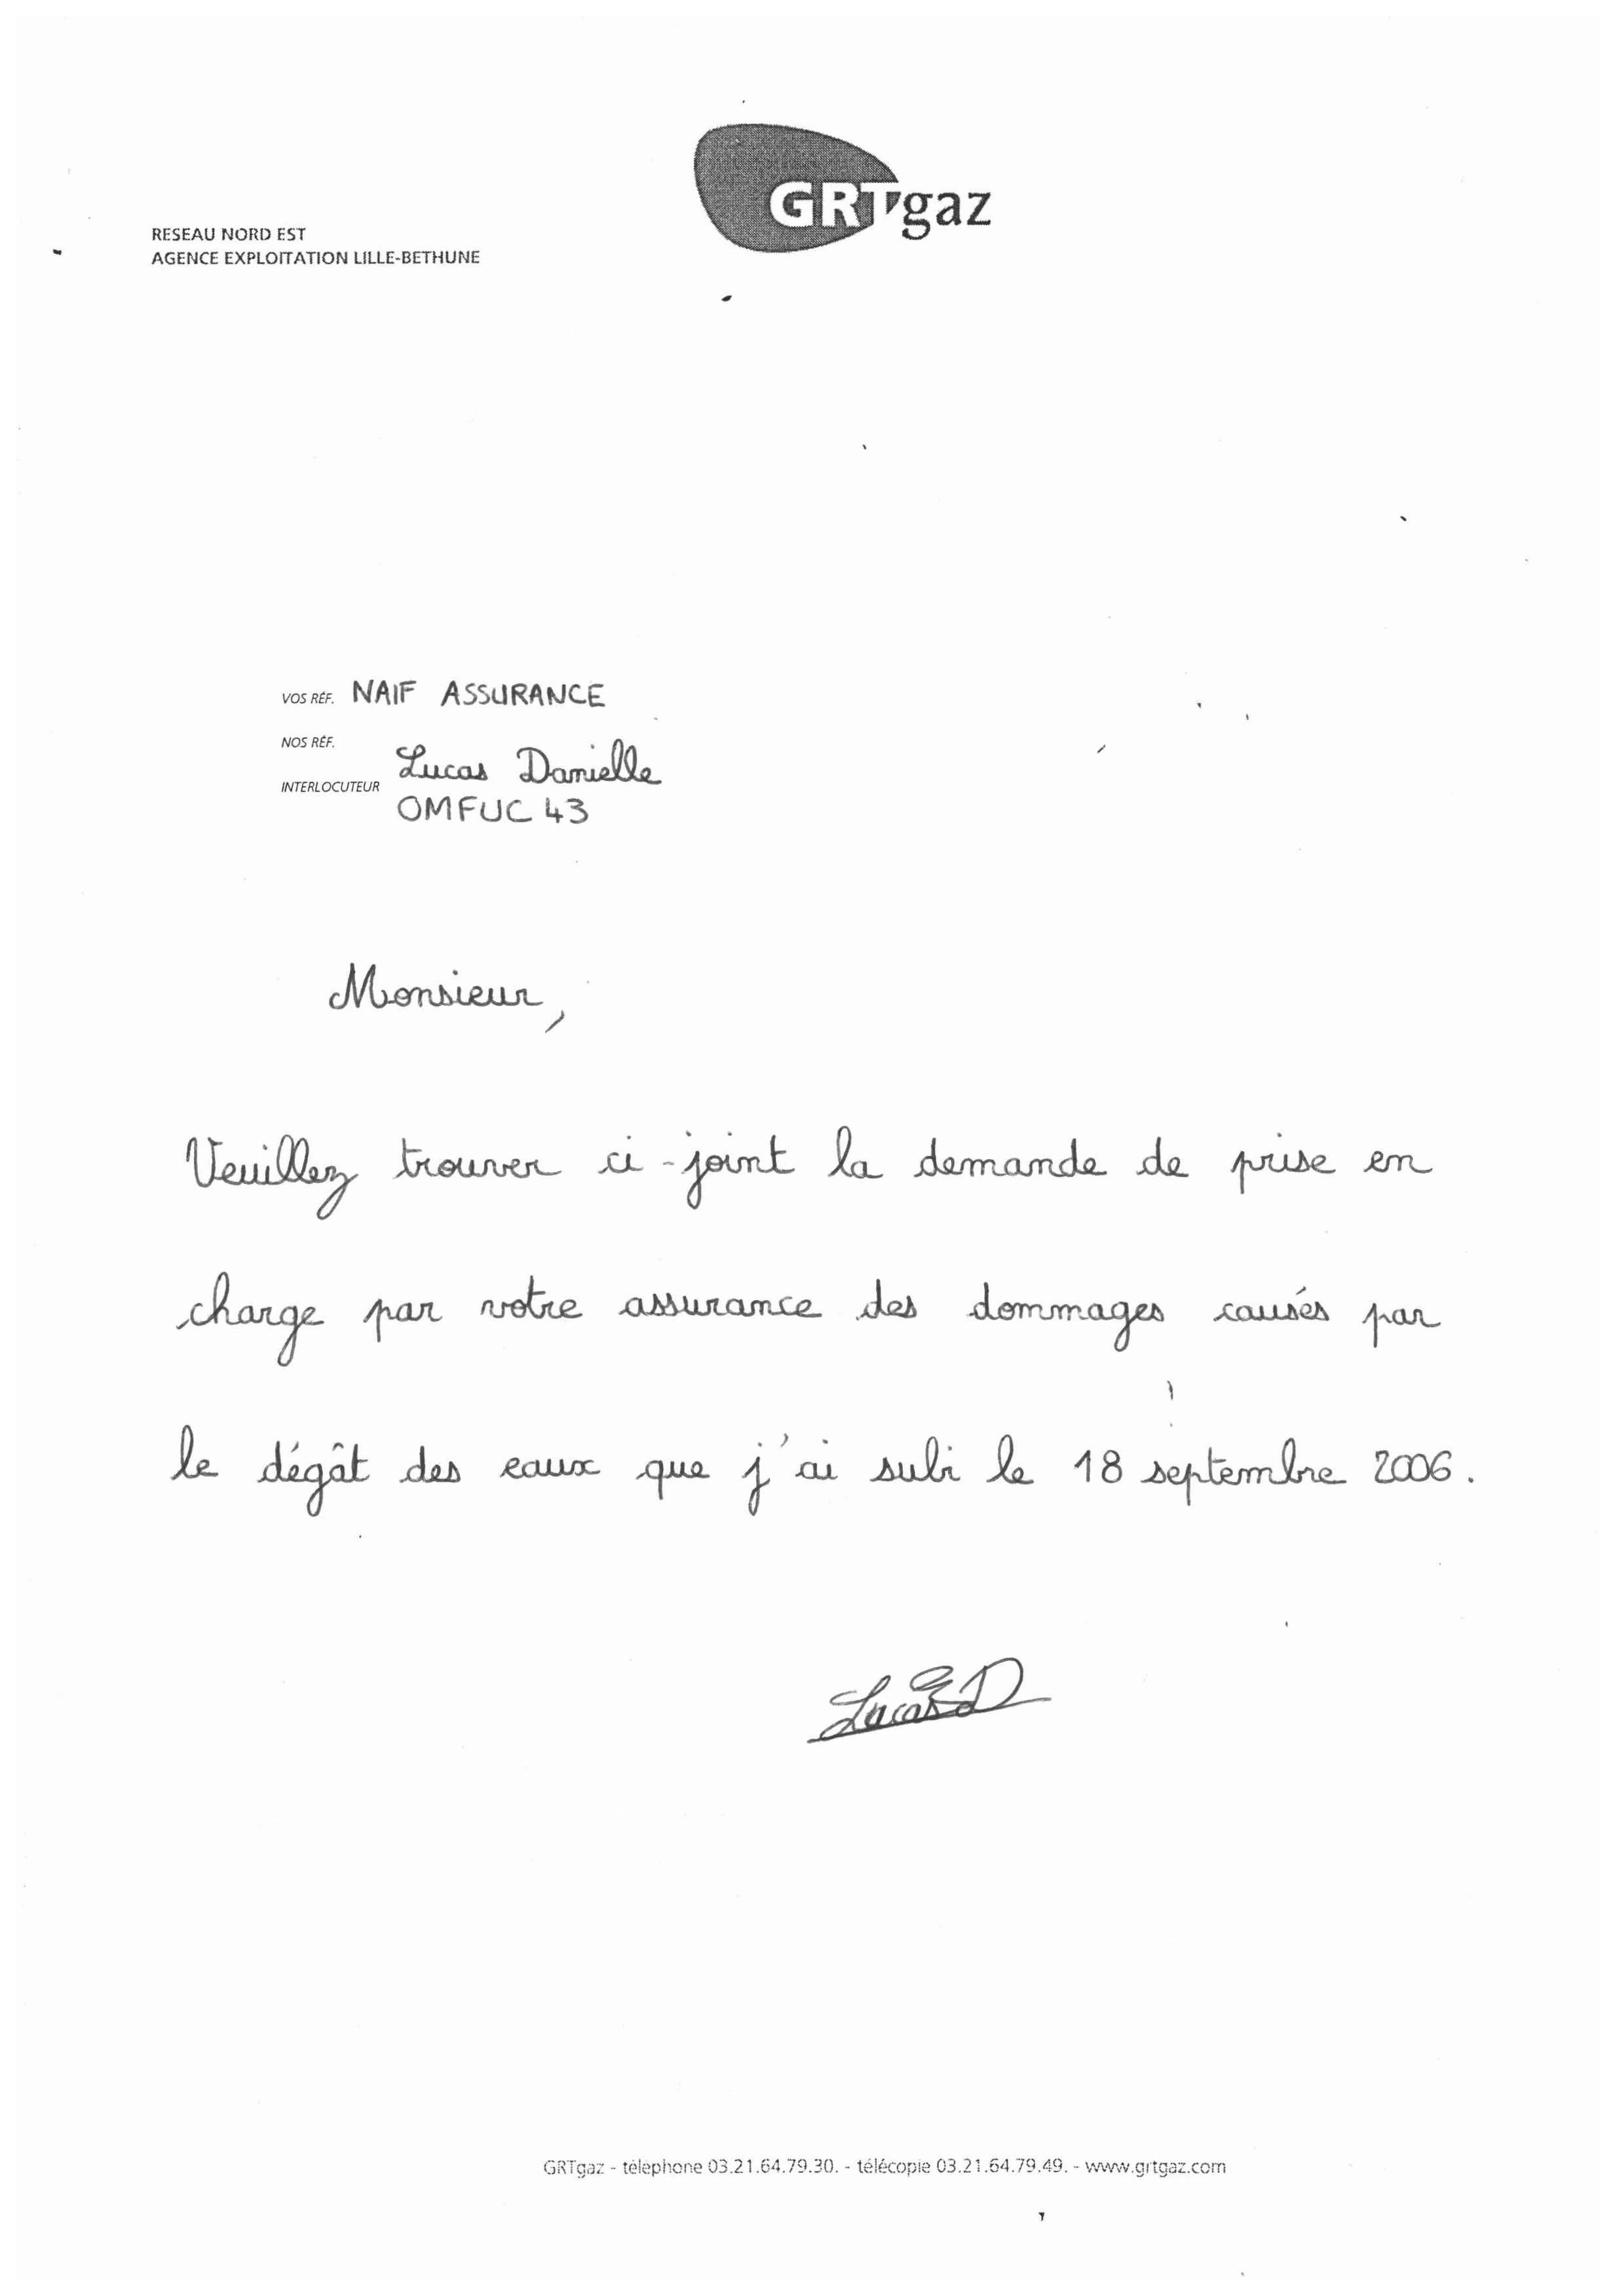 GRTgaz
RESEAU NORD EST
AGENCE EXPLOITATION LILLE-BETHUNE
VOS RÉF. NAIF ASSURANCE
NOS RÉF.
INTERLOCUTEUR Lucas Danielle
OMFUC 43
Monsieur,
Veuillez trouver ci-joint la demande de prise en
charge par votre assurance des dommages causés par
le dégât des eaux que j'ai subi le 18 septembre 2006.
Lucas D
GRTgaz - téléphone 03.21.64.79.30. - télécopie 03.21.64.79.49. - www.grtgaz.com